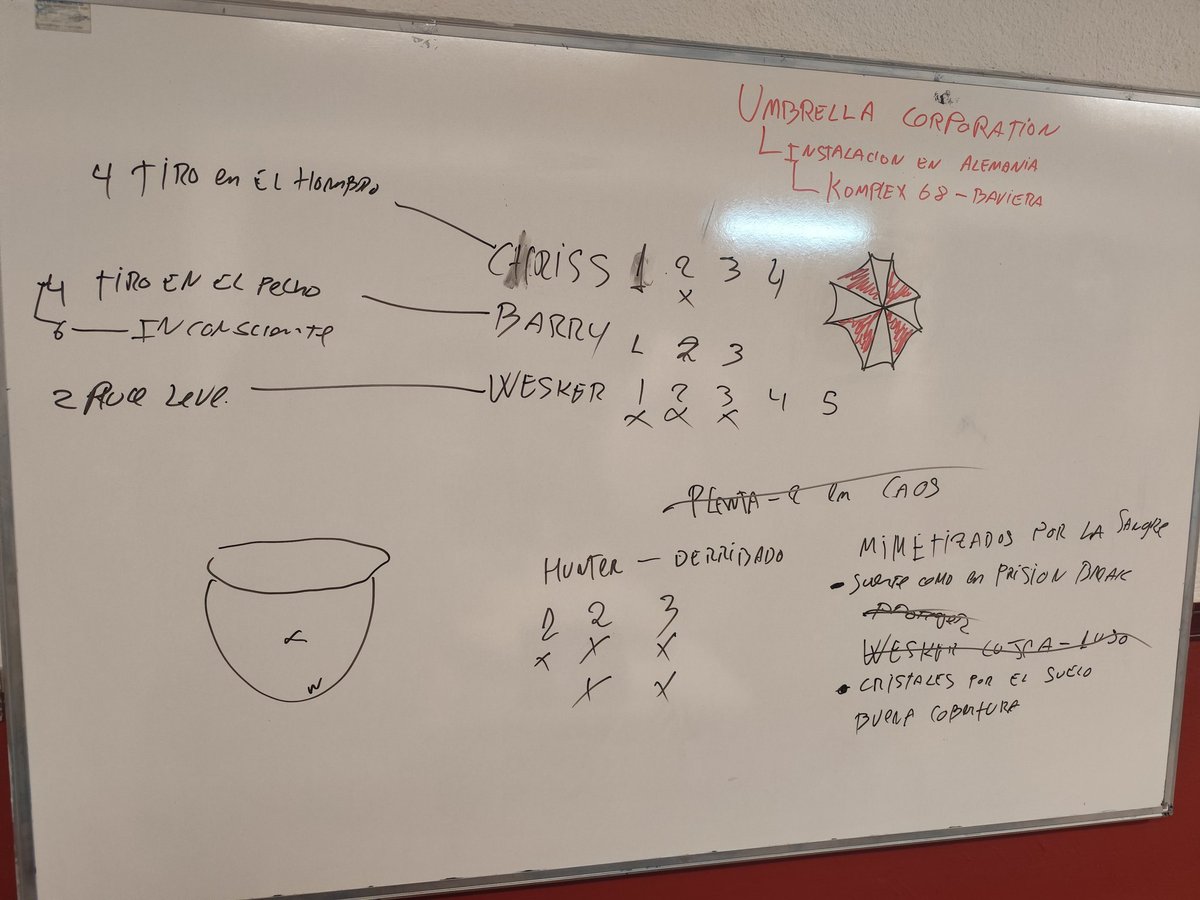 UMBRELLA CORPORATION
INSTALACION EN ALEMANIA
KOMPLEX 68 - BAVIERA
4 TIRO en EL HOMBRO
CHRISS 1 2 3 4
X
4 TIRO EN EL PECHO
6 INCONSCIENTE
BARRY 1 2 3
2 LEVE.
WESKER 1 2 3 4 5
X X X
en CAOS
HUNTER - DERRIBADO
1 2 3
X X X
X X
MIMETIZADOS POR LA SANGRE
- SUERTE COMO en PRISION BREAK
WESKER COJEA - LUJO
• CRISTALES POR EL SUELO
BUENA COBERTURA